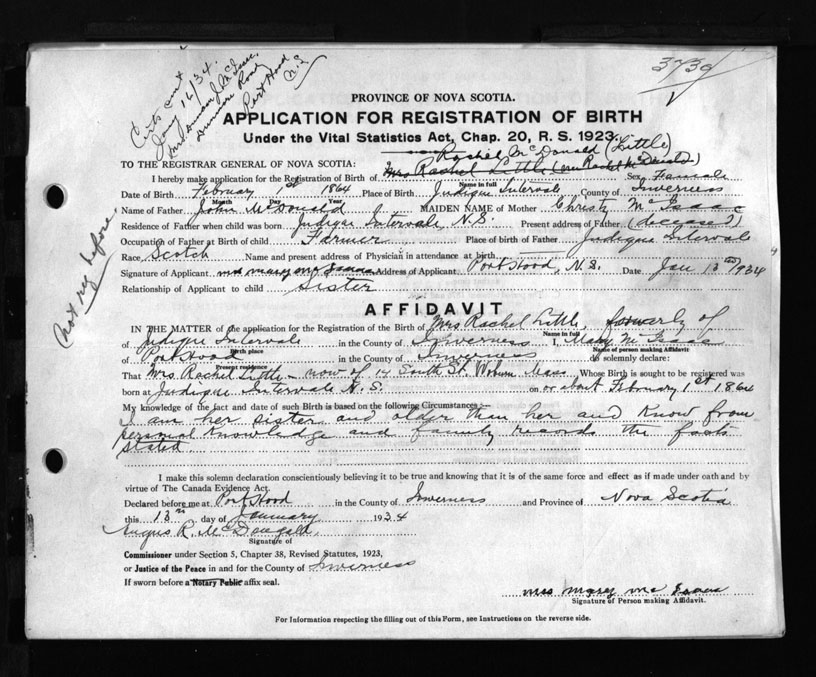 Certs sent
Jany 16/34.
Mrs. Duncan J. McIsaac
Dunmore Road
Port Hood
N.S.
3739
PROVINCE OF NOVA SCOTIA.
APPLICATION FOR REGISTRATION OF BIRTH
Under the Vital Statistics Act, Chap. 20, R. S. 1923.
Rachel McDonald (Little)
TO THE REGISTRAR GENERAL OF NOVA SCOTIA:
I hereby make application for the Registration of Birth of Mrs Rachel Little (nee Rachel McDonald) Sex Female
Name in full
Date of Birth February 1st 1864 Place of Birth Judique Intervale County of Inverness
Month Day Year
Name of Father John McDonald MAIDEN NAME of Mother Christy McIsaac
Residence of Father when child was born Judique Intervale, N.S. Present address of Father (deceased)
Occupation of Father at Birth of child Farmer Place of birth of Father Judique Intervale
Race Scotch Name and present address of Physician in attendance at birth
Signature of Applicant Mrs Mary McIsaac Address of Applicant Port Hood, N.S. Date Jan 13th 1934
Relationship of Applicant to child Sister
Not reg before
AFFIDAVIT
IN THE MATTER of the application for the Registration of the Birth of Mrs Rachel Little, formerly of
Name in full
of Judique Intervale in the County of Inverness I, Mary McIsaac
Birth place Name of person making Affidavit
of Port Hood in the County of Inverness do solemnly declare:
Present residence
That Mrs Rachel Little - now of 14 South St. Woburn Mass. Whose Birth is sought to be registered was
born at Judique Intervale N.S. on or about February 1st 1864
My knowledge of the fact and date of such Birth is based on the following Circumstances:—
I am her sister and older than her and know from
personal knowledge and family records the facts
stated.
I make this solemn declaration conscientiously believing it to be true and knowing that it is of the same force and effect as if made under oath and by
virtue of The Canada Evidence Act.
Declared before me at Port Hood in the County of Inverness and Province of Nova Scotia
this 13th day of January 1934
Angus R. McDougald
Signature of
Commissioner under Section 5, Chapter 38, Revised Statutes, 1923,
or Justice of the Peace in and for the County of Inverness
If sworn before a Notary Public affix seal.
Mrs Mary McIsaac
Signature of Person making Affidavit.
For Information respecting the filling out of this Form, see Instructions on the reverse side.